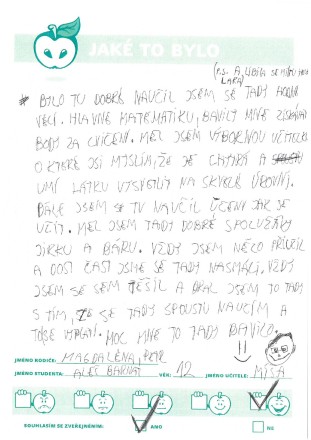 JAKÉ TO BYLO
(P.S. A LÍBILA SE MI TU
* BYLO TU DOBRÉ NAUČIL JSEM SE TADY HODNĚ
VĚCÍ. HLAVNĚ MATEMATIKU, BAVILY MNE ZÍSKÁVAT
BODY ZA CVIČENÍ. MĚL JSEM VÝBORNOU UČITELKU
O KTERÉ SI MYSLÍM, ŽE JE CHYTRÁ A
UMÍ LÁTKU VYSVĚTLIT NA SKVĚLÉ ÚROVNI.
DÁLE JSEM SE TU NAUČIL UČENÍ JAK JE
UČIT. MĚL JSEM TADY DOBRÉ SPOLUŽÁKY
JIRKU A BÁRU. VŽDY JSEM NĚCO PŘIUČIL
A DOST ČAST JSME SE TADY NASMÁLI. VŽDY
JSEM SE SEM TĚŠIL A BRAL JSEM TO TADY
S TÍM, ŽE SE TADY SPOUSTU NAUČÍM A
TO SE VYPLATÍ. MOC MNE TO TADY BAVILO.
JMÉNO RODIČE: MAGDALÉNA, PETR
JMÉNO STUDENTA: ALEŠ VĚK: 12 JMÉNO UČITELE: MÍŠA
SOUHLASÍM SE ZVEŘEJNĚNÍM: ANO NE